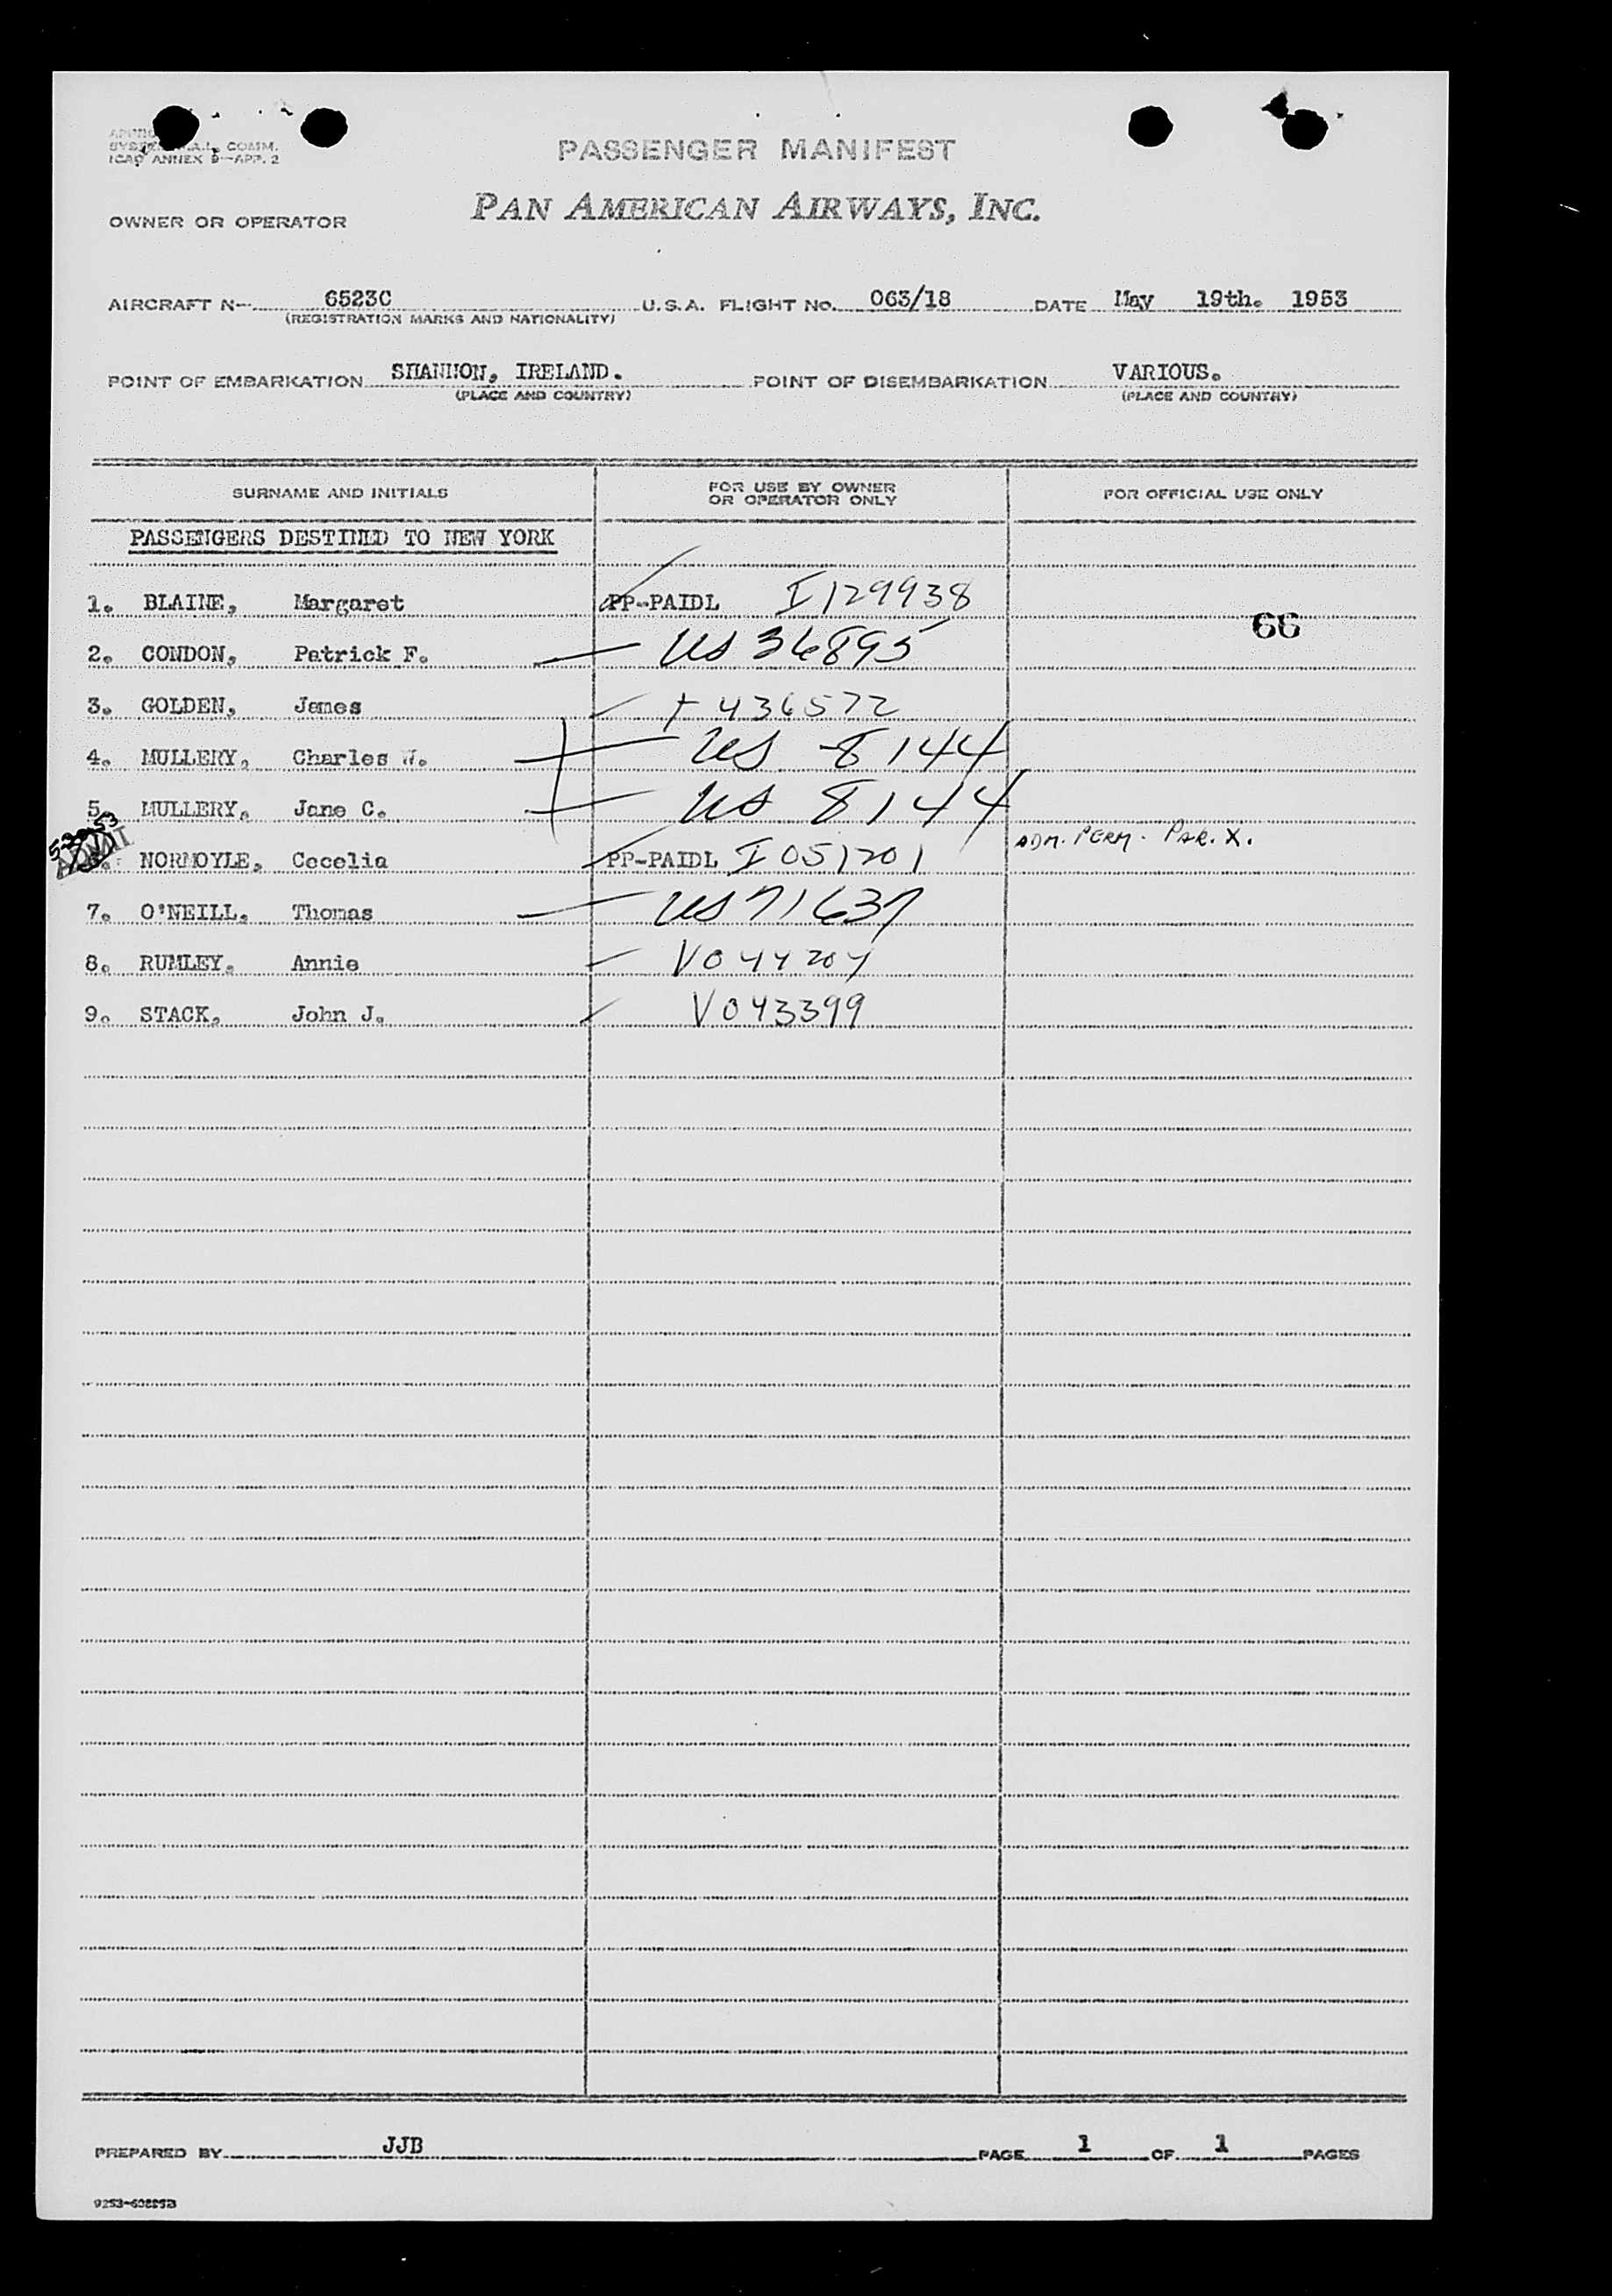 SYSTEM A.I. COMM.
ICAO ANNEX 9—APP. 2
PASSENGER MANIFEST
OWNER OR OPERATOR PAN AMERICAN AIRWAYS, INC.
AIRCRAFT N- 6523C U.S.A. FLIGHT NO. 063/18 DATE May 19th. 1953
(REGISTRATION MARKS AND NATIONALITY)
POINT OF EMBARKATION SHANNON, IRELAND. POINT OF DISEMBARKATION VARIOUS.
(PLACE AND COUNTRY) (PLACE AND COUNTRY)
SURNAME AND INITIALS FOR USE BY OWNER OR OPERATOR ONLY FOR OFFICIAL USE ONLY
PASSENGERS DESTINED TO NEW YORK
1. BLAINE, Margaret PP-PAIDL I129938
66
2. CONDON, Patrick F. US 36895
3. GOLDEN, James + 436572
4. MULLERY, Charles W. US 8144
5. MULLERY, Jane C. US 8144
ADM. PERM. PAR. X.
6. NORMOYLE, Cecelia PP-PAIDL I 051201
7. O'NEILL, Thomas US 71637
8. RUMLEY, Annie V044204
9. STACK, John J. V043399
PREPARED BY JJB PAGE 1 OF 1 PAGES